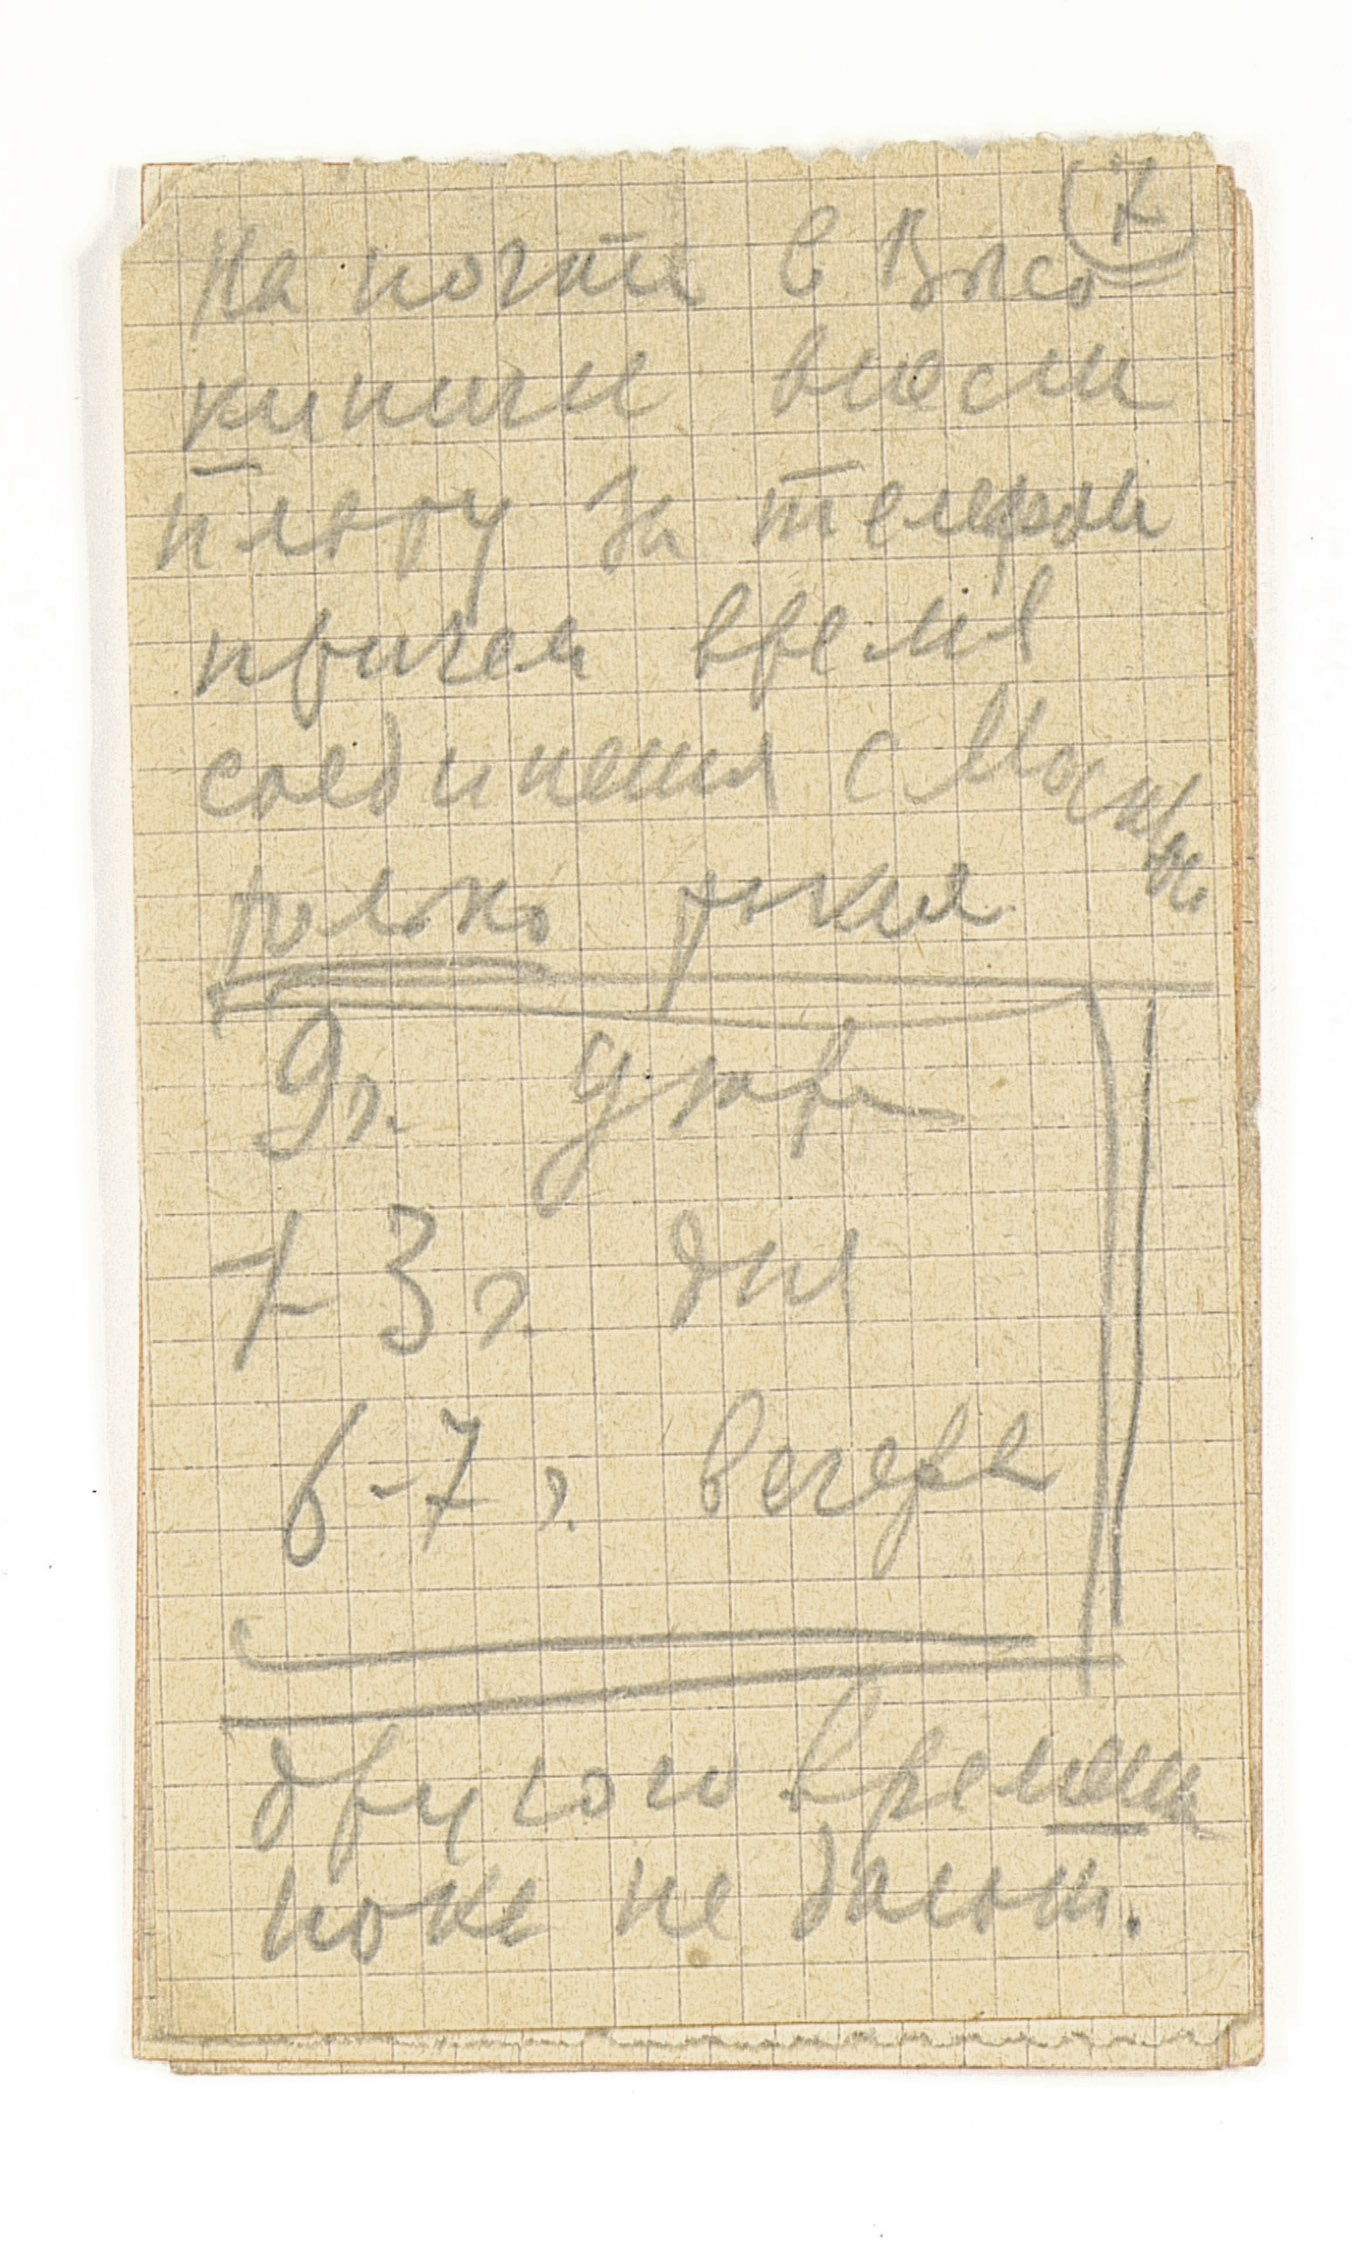 7
На почте в Высо
киничи внесли
плату за телефон
причем время
соединения с Москвой
только
9 ч. утра
1-3 ч. дня
6-7 ч. вечера
другого времени
пока не дают.